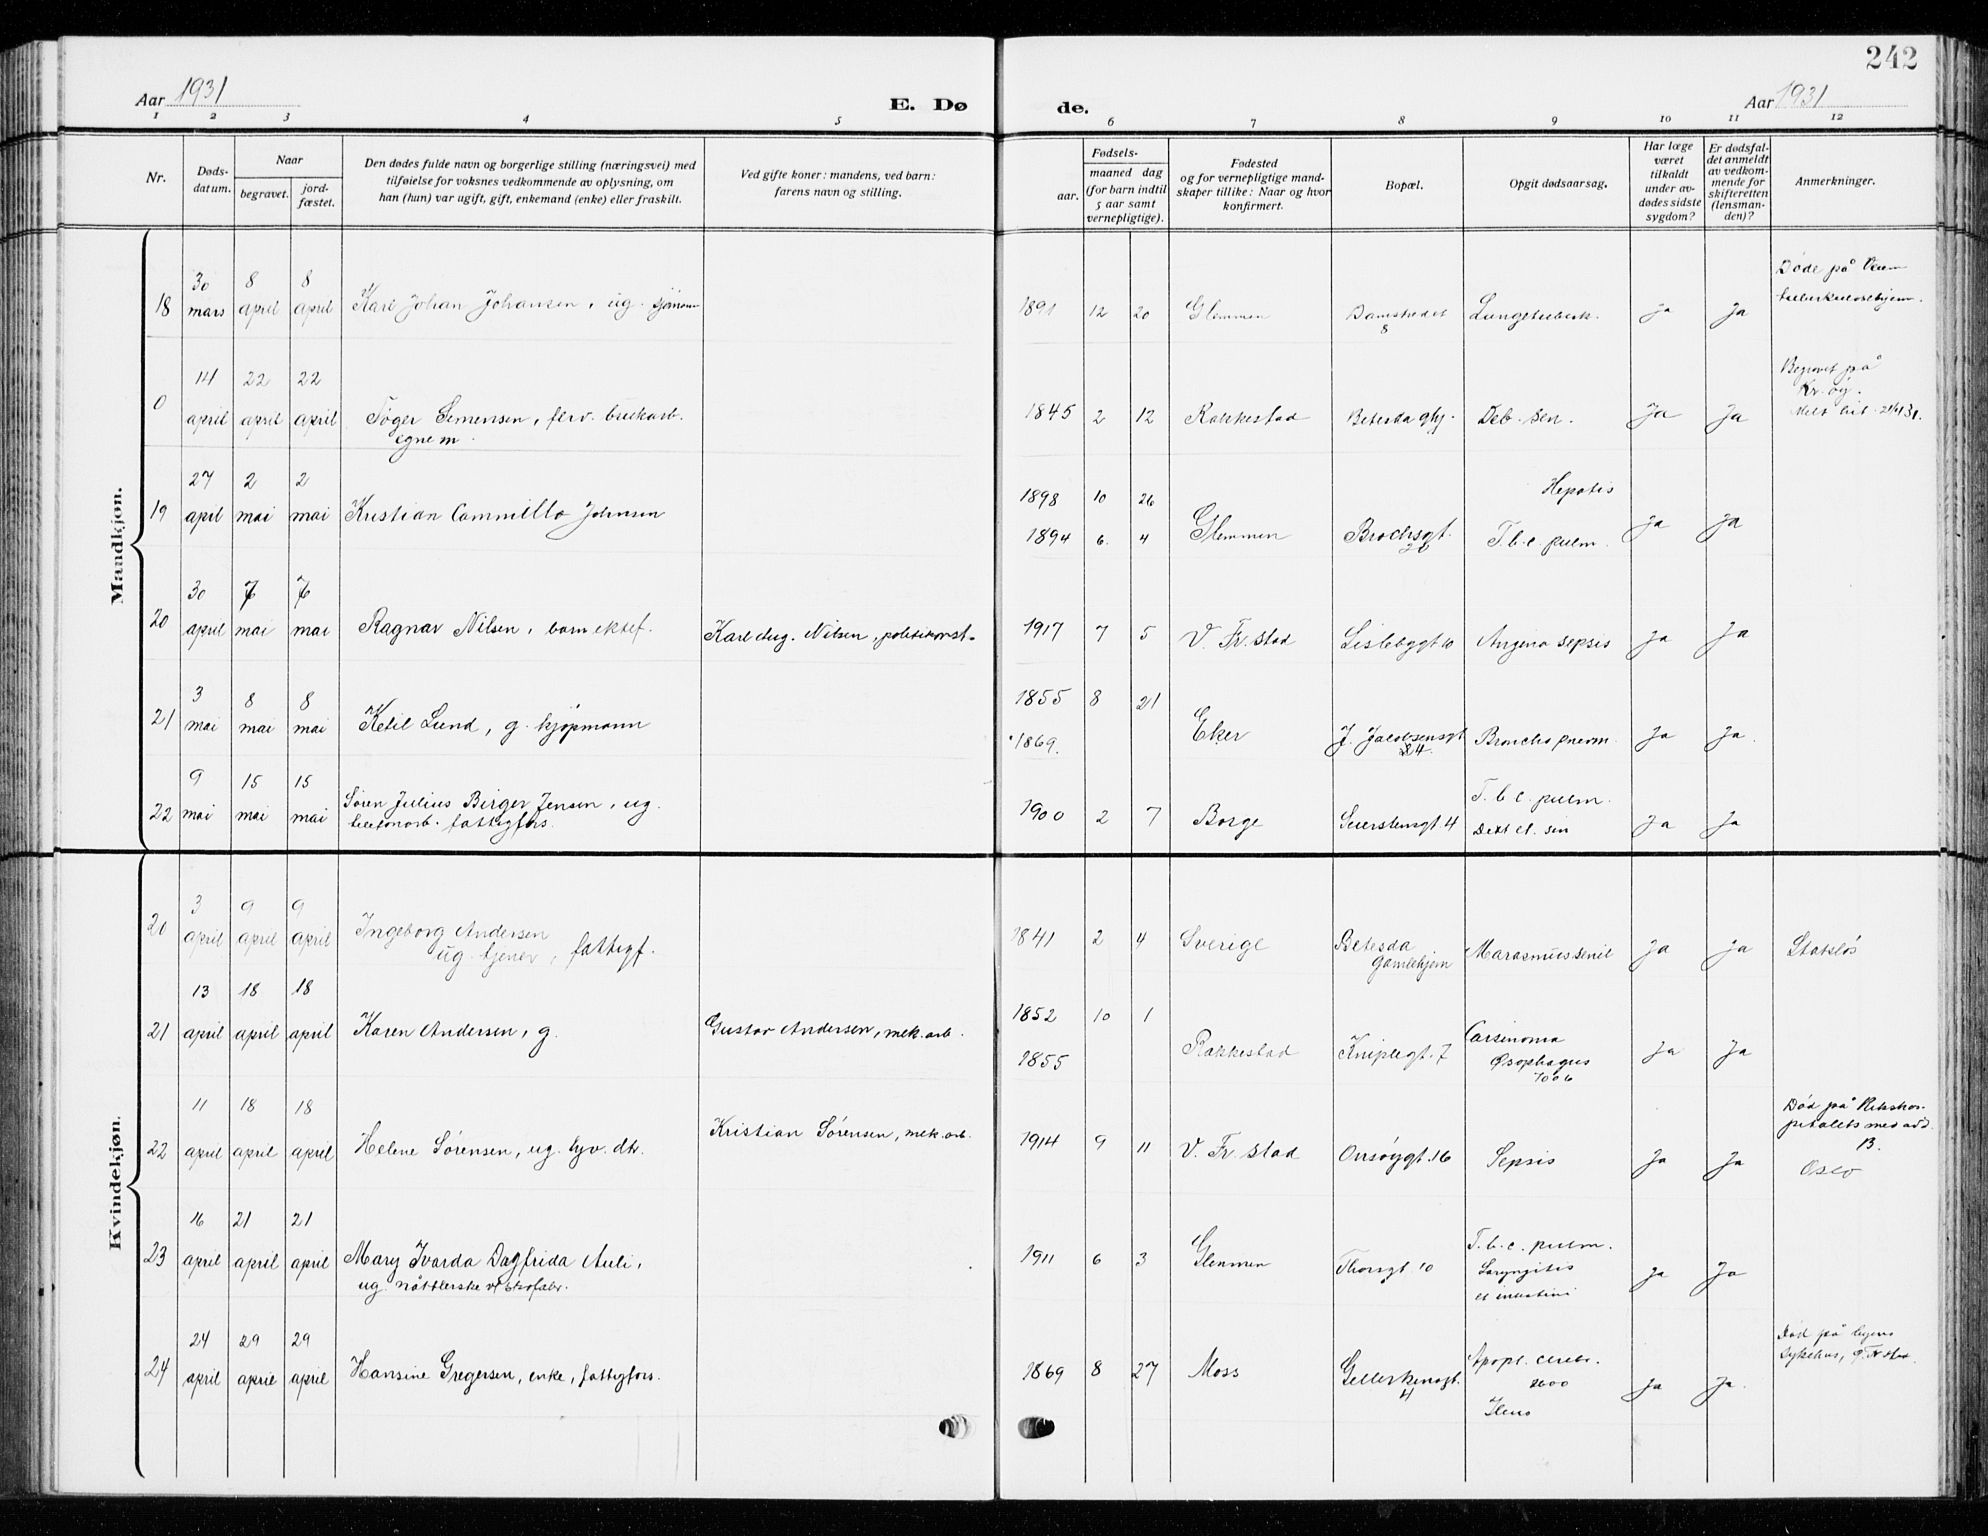 242
Aar 1931
E. Dø
de.
Aar 1931
1 2 3 4 5 6 7 8 9 10 11 12
Nr.
Døds-
datum.
Naar
begravet.
jord-
fæstet.
Den dødes fulde navn og borgerlige stilling (næringsvei) med
tilføielse for voksnes vedkommende av oplysning, om
han (hun) var ugift, gift, enkemand (enke) eller fraskilt.
Ved gifte koner: mandens, ved barn:
farens navn og stilling.
Fødsels-
aar.
maaned dag
(for barn indtil
5 aar samt
vernepligtige).
Fødested
og for vernepligtige mand-
skaper tillike: Naar og hvor
konfirmert.
Bopæl.
Opgit dødsaarsag.
Har læge
været
tilkaldt
under av-
dødes sidste
sygdom?
Er dødsfal-
det anmeldt
av vedkom-
mende for
skifteretten
(lensman-
den)?
Anmerkninger.
Mandkjøn.
30 8 8 Døde på
18 mars april april Karl Johan Johansen, ug. sjømann 1891 12 20 Glemmen Damstredet Lungetuberk. ja ja tuberkulosehjem.
8
14 22 22 Begravet på
0 april april april Tøger Simensen, forv. brukarb. 1845 2 12 Rakkestad Betesda glhj. Deb. sen. Ja Ja Kr. øy.
egne m
27 2 2 1898 10 26 Hepatis
19 april mai mai Kristian Cammillo Johnsen 1894 6. 4 Glemmen Brochsgt. T.b.c. pulm. ja ja
30 7 7
20 april mai mai Ragnar Nilsen, barn ektef. Karl Aug. Nilsen, politikonst. 1917 7 5 V. Fr.stad Lislebygt 10 Angina sepsis ja ja
3 8 8 1855 8 21
21 mai mai mai Ketil Lund, g. kjøpmann 1869. Eker J. Jacobsensgt Broncho pneum. Ja Ja.
24.
9 15 15 T.b.c. pulm.
22 mai mai mai Søren Julius Birger Jensen, ug. 1900 2 7 Borge Seierstensgt. 4 Dext et. sin Ja Ja
fattigfors.
Kvindekjøn.
3 9 9
20 april april april Ingeborg Andersen 1841 2 4 Sverige Betesda Marasmus senil Ja Ja Statsløs
ug. tjener, fattigf. Gamlehjem
13 18 18 1852 10 1
21 april april april Karen Andersen, g. Gustav Andersen, mek. arb. Carsinoma
1855 Rakkestad Kniplegt. 7 Øsophagus Ja Ja
11 18 18 Død på Rikshos-
22 april april april Helene Sørensen, ug. hjv. dtr. Kristian Sørensen, mek. arb. 1914 9 11 V. Fr.stad Onsøygt. 16 Sepsis Ja Ja pitalets med. avd.
B.
Oslo
16 21 21 T.b.c. pulm.
23 april april april Mary Ivarda Dagfrida Auli, 1911 6 3 Glemmen Thorsgt. 10 Laryngitis ja Ja
ug. nåtlerske v/ skofabr. et intestini
24 29 29 Død på byens
24 april april april Hansine Gregersen, enke, fattigfors. 1869 8 27 Moss Apopl. cerebr. Ja Ja. sykehus,
4 Ileus